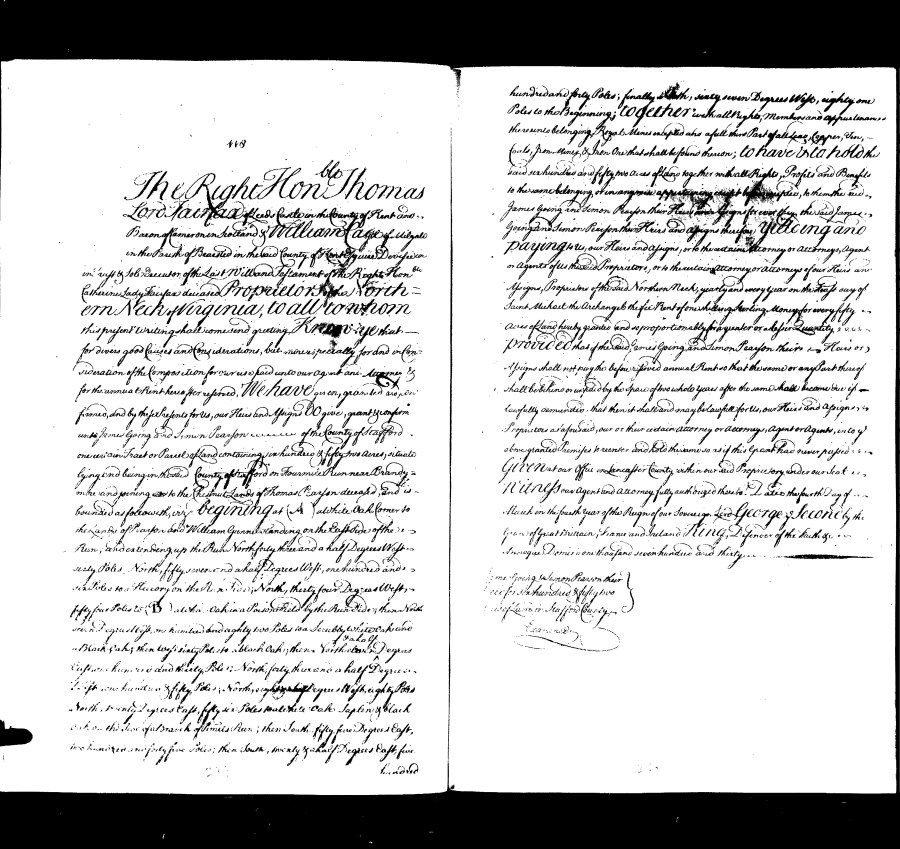 448
The Right Honble Thomas
Lord Fairfax of Leeds Castle in the County of Kent and
Baron of Cameron in Scotland & William Cage of Milgate
in the Parish of Bearsted in the said County of Kent Esquire Devisee in
Trust & Sole Executor of the Last Will and Testament of the Right Honble
Catherine Lady Fairfax deceased Proprietors of the North=
ern Neck of Virginia, to all to whom
this present Writing shall come send greeting, Know ye that
for divers good Causes and Considerations, but more especially for and in Con-
sideration of the Composition for our use paid unto our Agent and Attorney &
for the annual Rent hereafter reserved, We have given, granted and con
firmed, and by these Presents for Us, our Heirs and Assigns Do give, grant & confirm
unto James Going and Simon Pearson of the County of Stafford
one certain Tract or Parcel of Land containing six hundred & fifty two Acres, situate
lying and being in the said County of Stafford on Fourmile Run near Brandy-
more and joining to the Chesnut Lands of Thomas Pearson deceased, and is
bounded as followeth, viz begining at A a White Oak Corner to
the Lands of Pearson and William Gunnel standing on the East Side of the
Run, and extending up the Run North forty three and a half Degrees West
sixty Poles, North, fifty seven and a half Degrees West, one hundred and
six Poles to a Hiccory on the Run Side; North, thirty four Degrees West,
fifty four Poles to B a White Oak in a Poison Field by the Run Side; then North
seven Degrees West, one hundred and eighty two Poles to a Scrubby White Oak and
& a half
a Black Oak; then West sixty Poles to a black Oak; then North eleven Degrees
East one hundred and thirty Poles; North, forty three and a half Degrees
East one hundred & fifty Poles; North, Degrees West, eighty Poles
North, twenty Degrees East, fifty six Poles to a White Oak Saplin & black
oak on the Side of a Branch of Pimits Run; then South fifty five Degrees East,
two hundred and forty five Poles; then South, twenty & a half Degrees East, five
hundred
hundred and forty Poles; finally South, sixty seven Degrees West, eighty one
Poles to the Beginning; together with all Rights, Members and Appurtenances
thereunto belonging, Royal Mines excepted and a full third Part of all Lead, Copper, Tin,
Coals, Iron Mines, & Iron Ore that shall be found thereon; to have & to hold the
said six hundred and fifty two Acres of Land together with all Rights, Profits and Benefits
to the same belonging or in any wise appertaining except before excepted, to them the said
James Going and Simon Pearson their Heirs and Assigns for ever they the said James
Going and Simon Pearson their Heirs and Assigns therefore Yielding and
paying to us, our Heirs and Assigns, or to the certain Attorney or Attorneys, Agent
or Agents of Us the said Proprietors, or to the certain Attorney or Attorneys of our Heirs and
Assigns, Proprietors of the said Northern Neck, yearly and every year on the Feast day of
Saint Michael the Archangel the fee Rent of one shilling Sterling Money for every fifty
Acres of Land hereby granted and so proportionably for a greater or a lesser Quantity
provided that if the said James Going and Simon Pearson their Heirs or
Assigns shall not pay the before reserved annual Rent so that the same or any Part thereof
shall be behind or unpaid by the Space of two whole years after the same shall become due if
lawfully demanded that then it shall and may be lawfull for Us, our Heirs and Assigns,
Proprietors as aforesaid, our or their certain Attorney or Attorneys, Agent or Agents, into y
above granted Premises to reenter and hold the same so as if this Grant had never passed
Given at our Office in Lancaster County within our said Proprietory under our Seal
Witness our Agent and Attorney fully authorized thereto. Dated the fourth Day of
March in the fourth Year of the Reign of our Sovereign Lord George y Second by the
Grace of Great Britain, France and Ireland King, Defender of the Faith &c
Annoque Domini one thousand seven hundred and thirty
James Going & Simon Pearson their
Deed for Six hundred & fifty two
Acres of Land in Stafford County